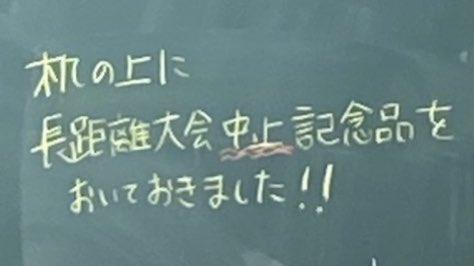 机の上に
長距離大会中止記念品を
おいておきました!!